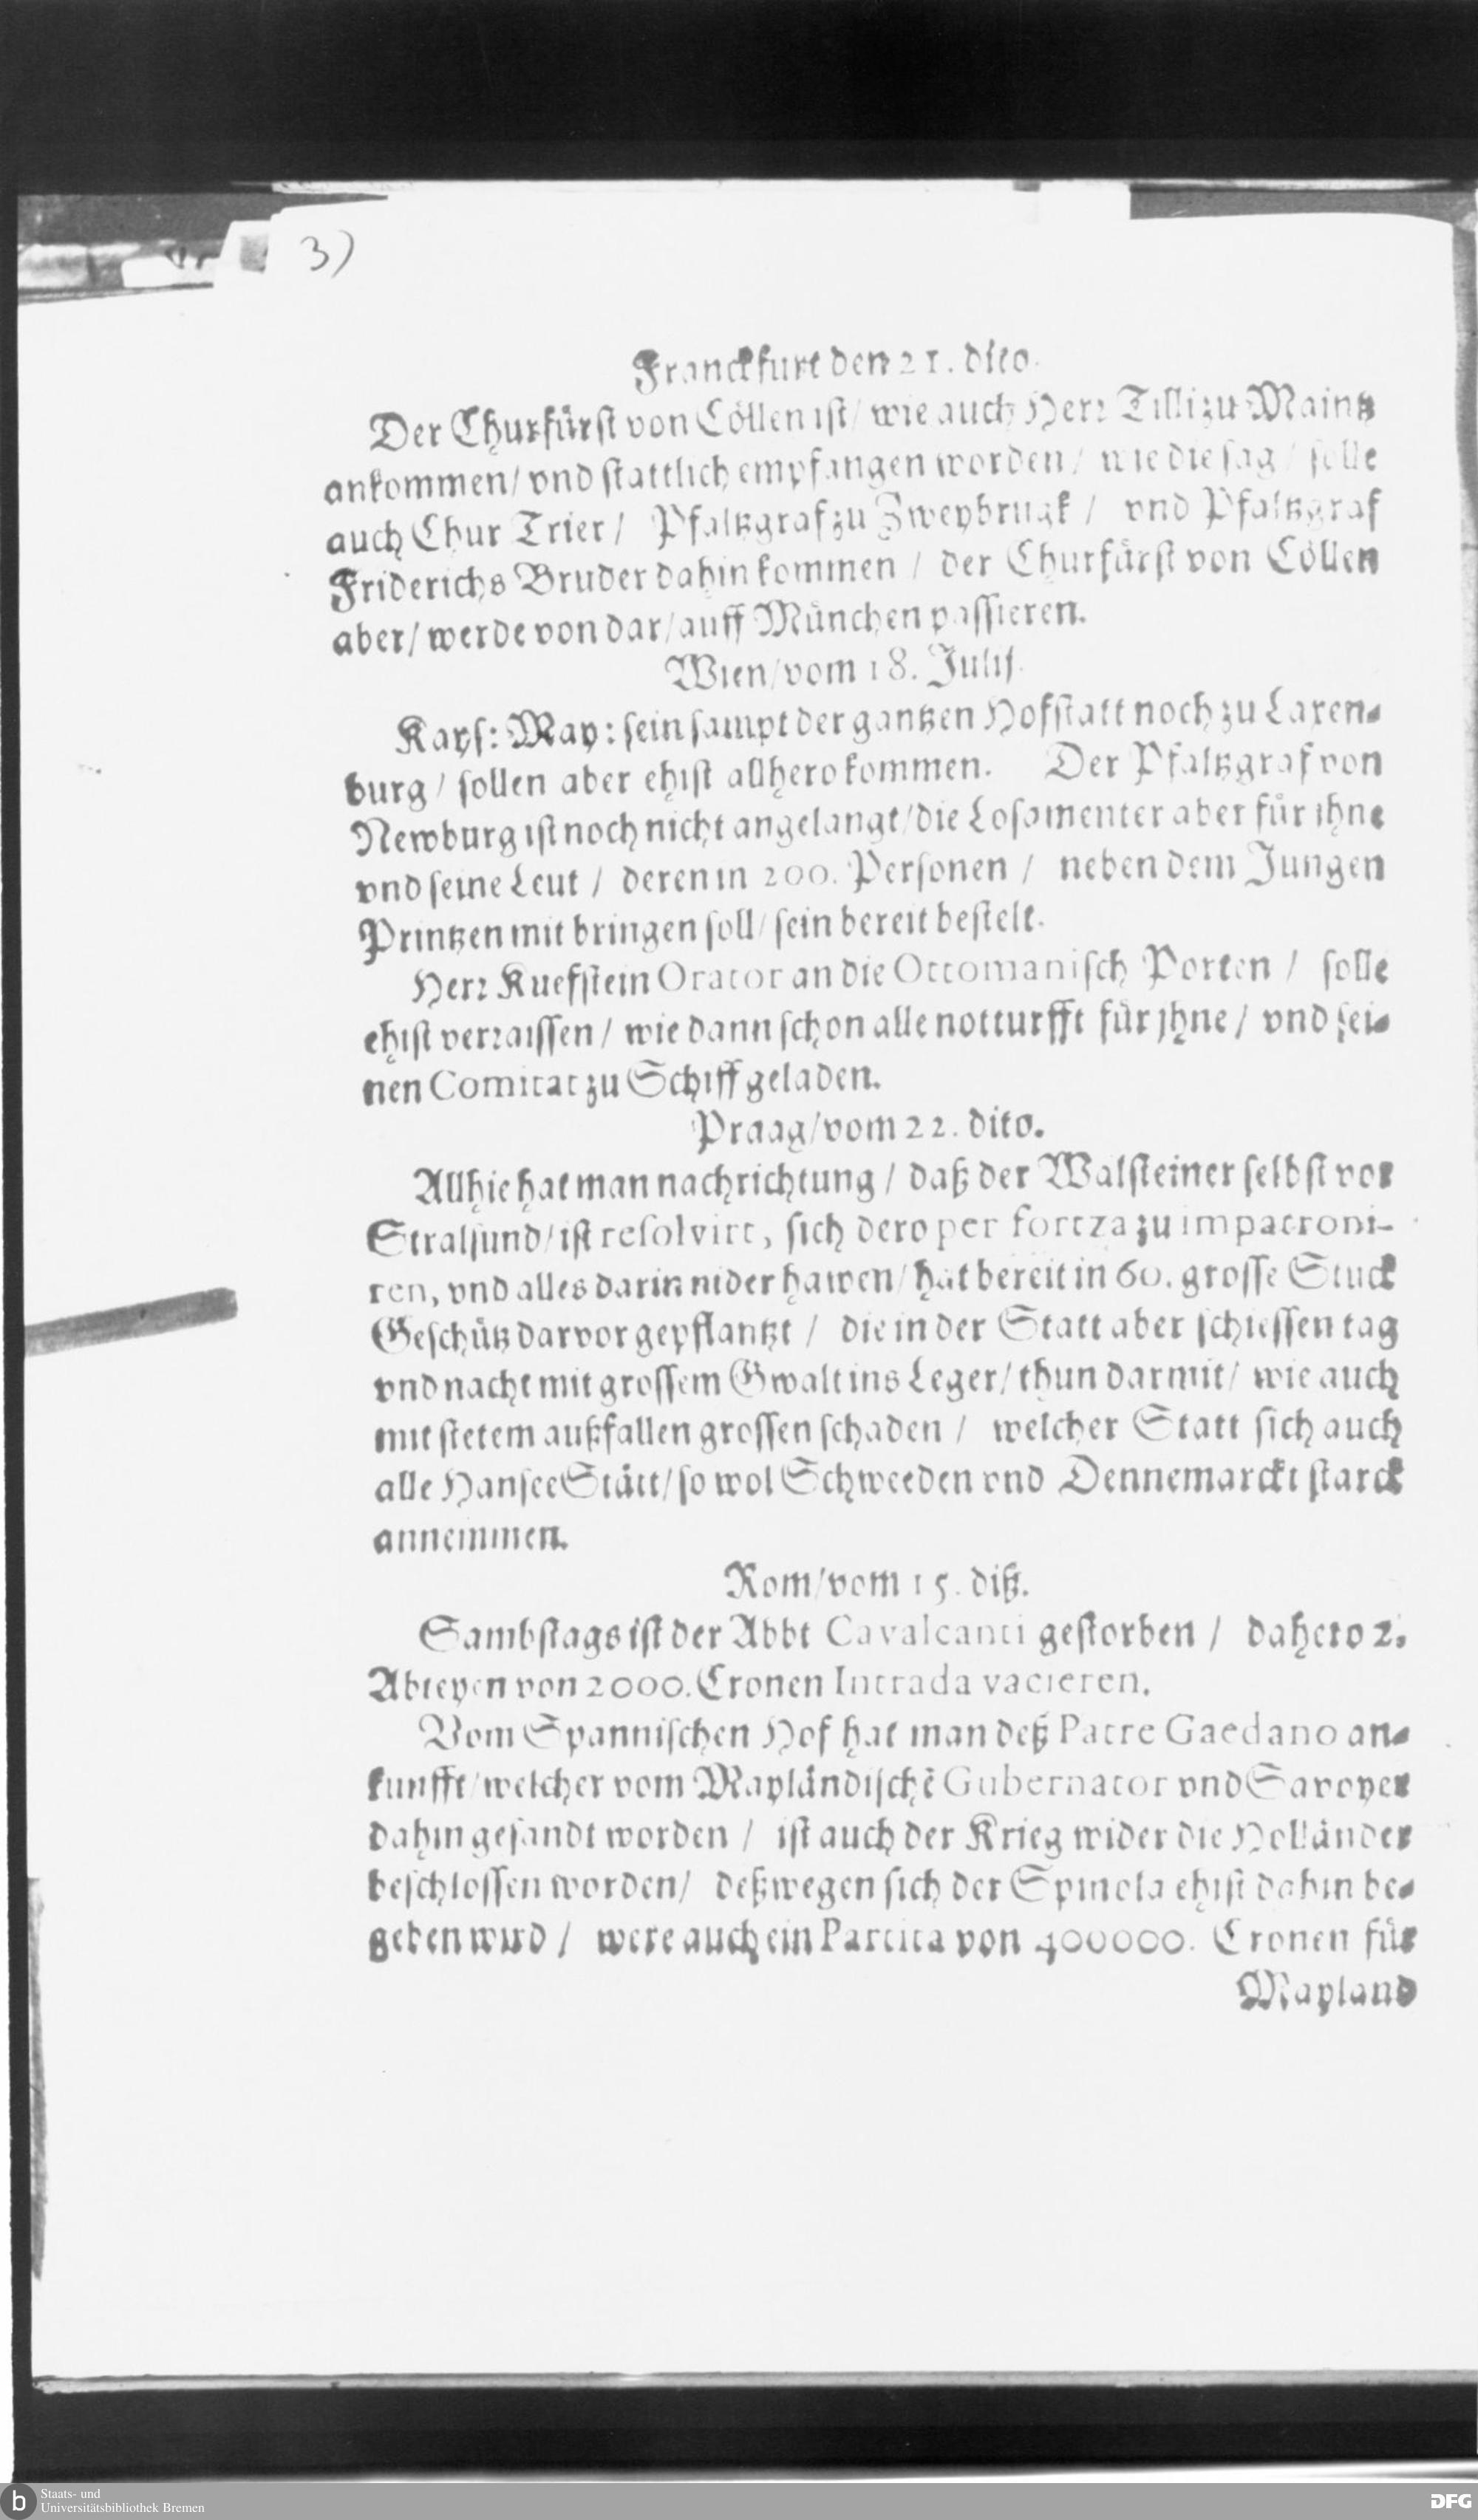 3)
Franckfurt den 21. dito.
Der Churfürst von Cöllen ist/ wie auch Herr Tilli zu Maintz
ankommen/ vnd stattlich empfangen worden/ wie die sag/ solle
auch Chur Trier/ Pfaltzgraf zu Zweybrugk/ vnd Pfaltzgraf
Friderichs Bruder dahin kommen/ der Churfürst von Cöllen
aber/ werde von dar/ auff München passieren.
Wien/ vom 18. Julij.
Kays: May: sein sampt der gantzen Hofstatt noch zu Laxen-
burg/ sollen aber ehist allhero kommen. Der Pfaltzgraf von
Newburg ist noch nicht angelangt/ die Losamenter aber für ihne
vnd seine Leut/ deren in 200. Personen/ neben dem Jungen
Printzen mit bringen soll/ sein bereit bestelt.
Herr Kuefstein Orator an die Ottomanisch Porten/ solle
ehist verraissen/ wie dann schon alle notturfft für jhne/ vnd sei-
nen Comitat zu Schiff geladen.
Praag/ vom 22. dito.
Allhie hat man nachrichtung/ daß der Walsteiner selbst vor
Stralsund/ ist resolvirt, sich dero per fortza zu impatroni-
ren, vnd alles darin nider hawen/ hat bereit in 60. grosse Stuck
Geschütz darvor gepflantzt/ die in der Statt aber schiessen tag
vnd nacht mit grossem Gwalt ins Leger/ thun darmit/ wie auch
mit stetem außfallen grossen schaden/ welcher Statt sich auch
alle HanseeStätt/ so wol Schweeden vnd Dennemarckt starck
annemmen.
Rom/ vom 15. diß.
Sambstags ist der Abbt Cavalcanti gestorben/ dahero 2.
Abteyen von 2000. Cronen Intrada vacieren.
Vom Spannischen Hof hat man deß Patre Gaedano an-
kunfft/ welcher vom Mayländischẽ Gubernator vnd Savoyer
dahin gesandt worden/ ist auch der Krieg wider die Holländer
beschlossen worden/ deßwegen sich der Spinola ehist dahin be-
geben wird/ were auch ein Partita von 400000. Cronen für
Mayland
b Staats- und
Universitätsbibliothek Bremen
DFG